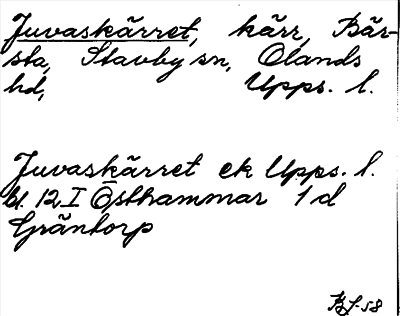 Juvaskärret, kärr, Bär-
sta, Stavby sn, Olands
hd, Upps. l.
Juvaskärret ek Upps. l.
bl. 12 I Östhammar 1 d
Gräntorp